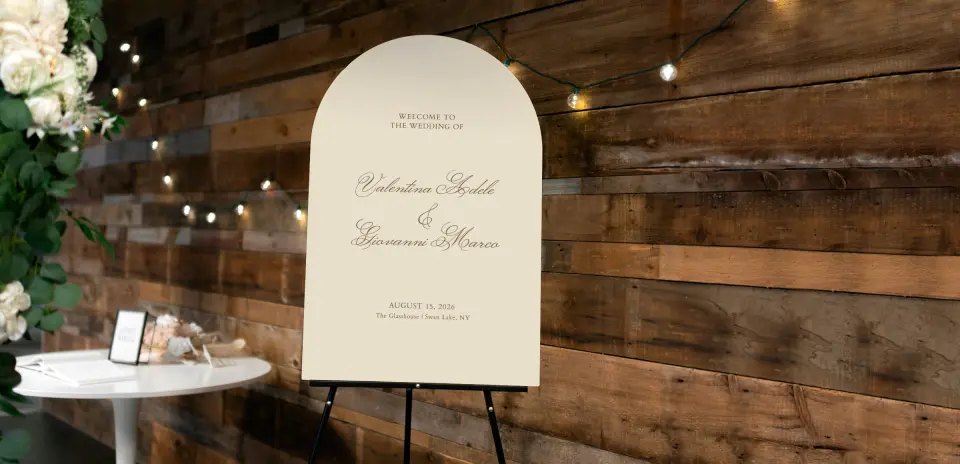 WELCOME TO
THE WEDDING OF
Valentina Adele
&
Giovanni Marco
AUGUST 15, 2026
The Glasshouse / Swan Lake, NY